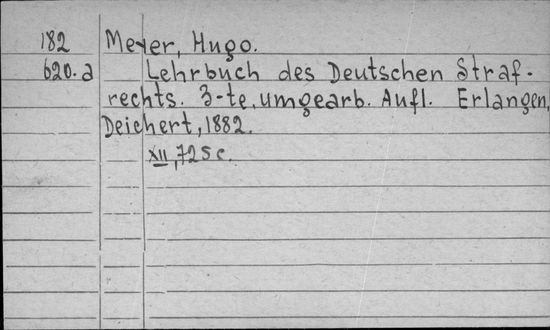 182 Meyer, Hugo.
620.a Lehrbuch des Deutschen Straf-
rechts. 3-te, umgearb. Aufl. Erlangen,
Deichert, 1882.
XII, 725 c.